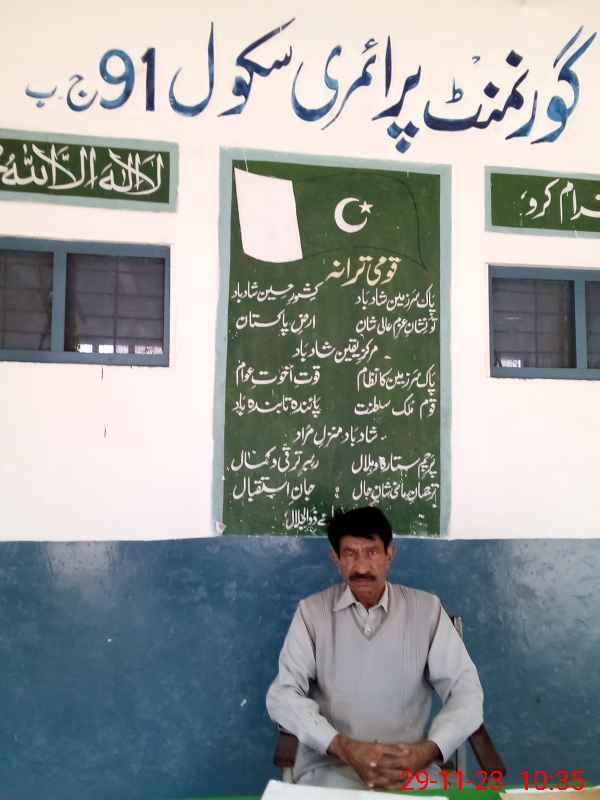 گورنمنٹ پرائمری سکول 91 ج ب
لا اله الا الله
کرو،
قومی ترانہ
پاک سرزمین شاد باد کشور حسین شاد باد
تو نشانِ عزم عالی شان ارض پاکستان
مرکزِ یقین شاد باد
پاک سرزمین کا نظام قوتِ اخوتِ عوام
قوم ملک سلطنت پائندہ تابندہ باد
شاد باد منزلِ مراد
پرچم ستارہ و ہلال رہبر ترقی و کمال
ترجمان ماضی شانِ حال جانِ استقبال
ذوالجلال
29-11-23 10:35